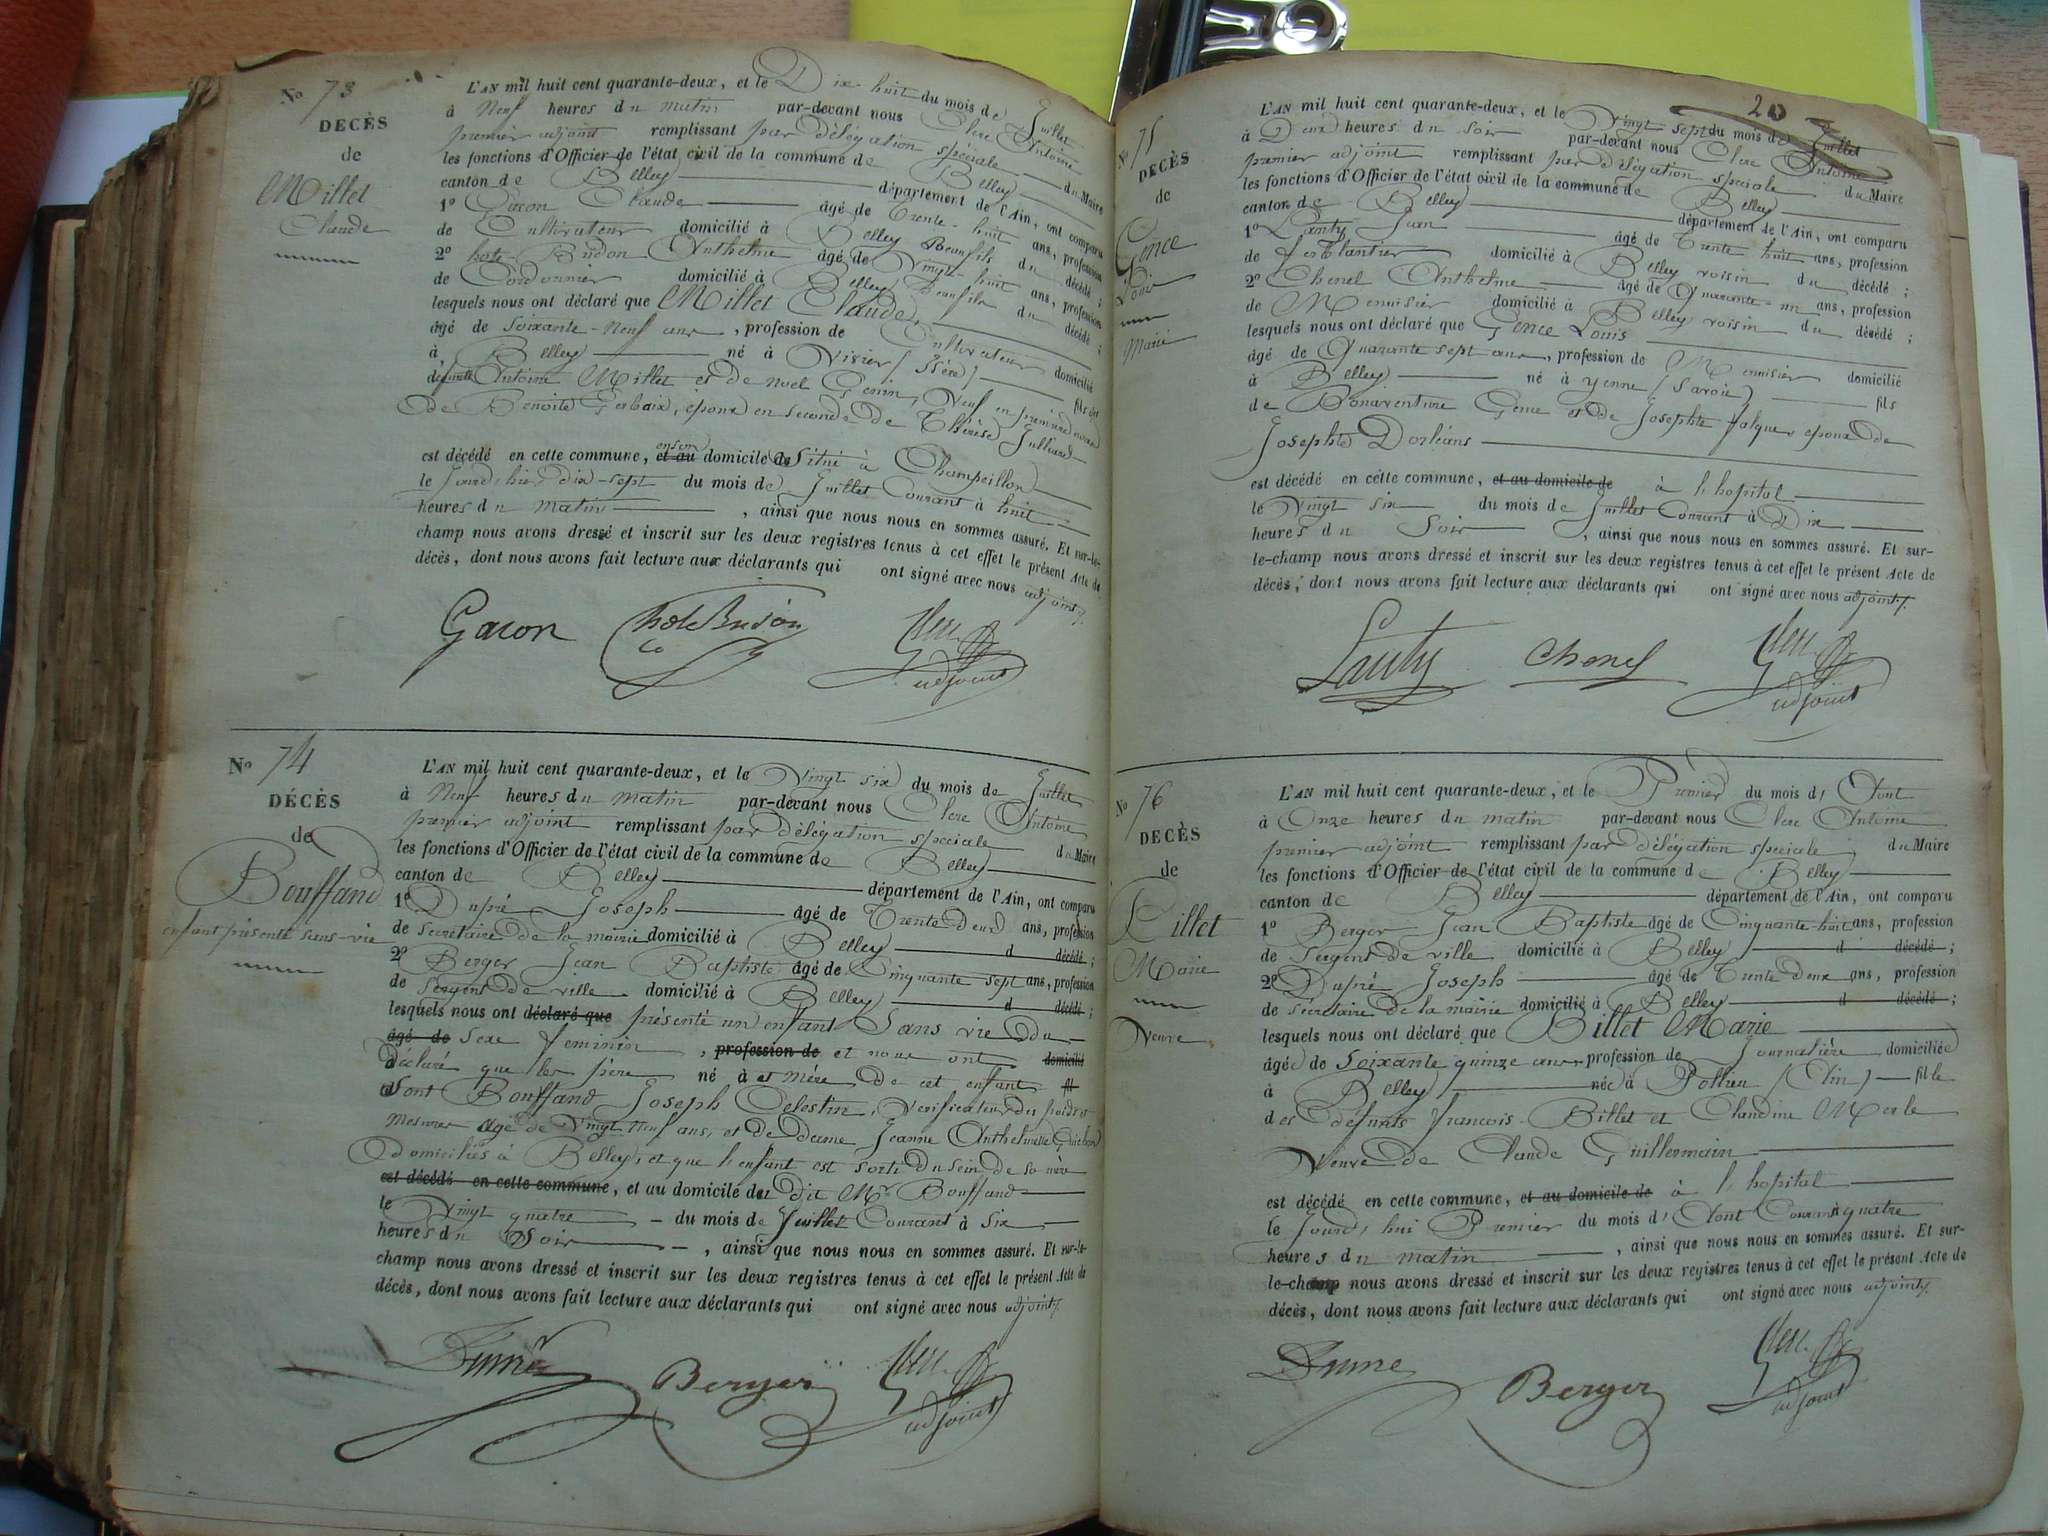 No 73
DECÈS
de
Millet
Claude
L'AN mil huit cent quarante-deux, et le Dix huit du mois de Juillet
à Neuf heures du matin par-devant nous Clerc Antoine
premier adjoint remplissant par délégation spéciale du Maire
les fonctions d'Officier de l'état civil de la commune de Belley
canton de Belley département de l'Ain, ont comparu
1o Gacon Claude âgé de trente huit ans, profession
de Cultivateur domicilié à Belley Beaufils du décédé ;
2o hote-Budon Anthelme âgé de Vingt huit ans, profession
de Cordonnier domicilié à Belley Beaufils du décédé ;
lesquels nous ont déclaré que Millet Claude,
âgé de soixante-Neuf ans, profession de Cultivateur domicilié
à Belley né à Virieu (Isère) fils de
Antoine Millet et de Genin, Veuf en premières noces
de Benoite Gerbaix, epoux en secondes de Thérèse Julliard
est décédé en cette commune, en son et au domicile de situé à Champeillon
le Jourd'hier dix-sept du mois de Juillet Courant à huit
heures du matin, ainsi que nous nous en sommes assuré. Et sur-le-
champ nous avons dressé et inscrit sur les deux registres tenus à cet effet le présent Acte de
décès, dont nous avons fait lecture aux déclarants qui ont signé avec nous adjoint
Gacon hoteBudon Clerc A
adjoint
No 74
DÉCÈS
de
Bouffand
enfant présenté sans-vie
L'AN mil huit cent quarante-deux, et le Vingt six du mois de Juillet
à Neuf heures du matin par-devant nous Clerc Antoine
premier adjoint remplissant par délégation speciale du Maire
les fonctions d'Officier de l'état civil de la commune de Belley
canton de Belley département de l'Ain, ont comparu
1o Dupré Joseph âgé de Trente deux ans, profession
de secrétaire de la mairie domicilié à Belley d décédé ;
2o Berger Jean Baptiste âgé de Cinquante sept ans, profession
de sergent de ville domicilié à Belley d décédé ;
lesquels nous ont déclaré que présenté un enfant Sans vie du
âgé de sexe feminin, profession de et nous ont domicilié
déclaré que les père né à et mère de cet enfant fil
sont Bouffand Joseph Celestin, Verificateur des poids et
mesures agé de Vingt neuf ans, et de dame Jeanne Anthelmette Guichon
domiciliés à Belley, et que l'enfant est sorti du sein de sa mère
est décédé en cette commune, et au domicile du dit Mr Bouffand
le Vingt quatre du mois de Juillet Courant à six
heures du Soir, ainsi que nous nous en sommes assuré. Et sur-le-
champ nous avons dressé et inscrit sur les deux registres tenus à cet effet le présent Acte de
décès, dont nous avons fait lecture aux déclarants qui ont signé avec nous adjoint
Dupré Berger Clerc A
adjoint
20
No 75
DECÈS
de
Gence
Louis
Marié
L'AN mil huit cent quarante-deux, et le Vingt sept du mois de Juillet
à Deux heures du soir par-devant nous Clerc Antoine
premier adjoint remplissant par délégation spéciale du Maire
les fonctions d'Officier de l'état civil de la commune de Belley
canton de Belley département de l'Ain, ont comparu
1o Lanty Jean âgé de Trente huit ans, profession
de ferblantier domicilié à Belley voisin du décédé ;
2o Chenel Anthelme âgé de Quarante-un ans, profession
de Menuisier domicilié à Belley voisin du décédé ;
lesquels nous ont déclaré que Gence Louis
âgé de Quarante sept ans, profession de Menuisier domicilié
à Belley né à yenne (Savoie) fils
de Bonaventure Gence et de Josephte falque epoux de
Josephte Dorléans
est décédé en cette commune, et au domicile de à l'hopital
le Vingt six du mois de Juillet Courant à Dix
heures du Soir, ainsi que nous nous en sommes assuré. Et sur-
le-champ nous avons dressé et inscrit sur les deux registres tenus à cet effet le présent Acte de
décès, dont nous avons fait lecture aux déclarants qui ont signé avec nous adjoint
Lanty Chenel Clerc A
adjoint
No 76
DECÈS
de
Billet
Marie
Veuve
L'AN mil huit cent quarante-deux, et le Premier du mois d'Aout
à Onze heures du matin par-devant nous Clerc Antoine
premier adjoint remplissant par délégation speciale du Maire
les fonctions d'Officier de l'état civil de la commune de Belley
canton de Belley département de l'Ain, ont comparu
1o Berger Jean Baptiste âgé de Cinquante-huit ans, profession
de Sergent de ville domicilié à Belley d décédé ;
2o Dupré Joseph âgé de Trente deux ans, profession
de Sécrétaire de la mairie domicilié à Belley d décédé ;
lesquels nous ont déclaré que Billet Marie
âgée de soixante quinze ans profession de Journalière domiciliée
à Belley née à Pollieu (Ain) fille
des défunts francois Billet et Claudine Merle
Veuve de Claude Guillermain
est décédé en cette commune, et au domicile de à l'hopital
le Jourd'hui Premier du mois d'Aout Courant à quatre
heures du matin, ainsi que nous nous en sommes assuré. Et sur-
le-champ nous avons dressé et inscrit sur les deux registres tenus à cet effet le présent Acte de
décès, dont nous avons fait lecture aux déclarants qui ont signé avec nous adjoint
Dupré Berger Clerc A
adjoint